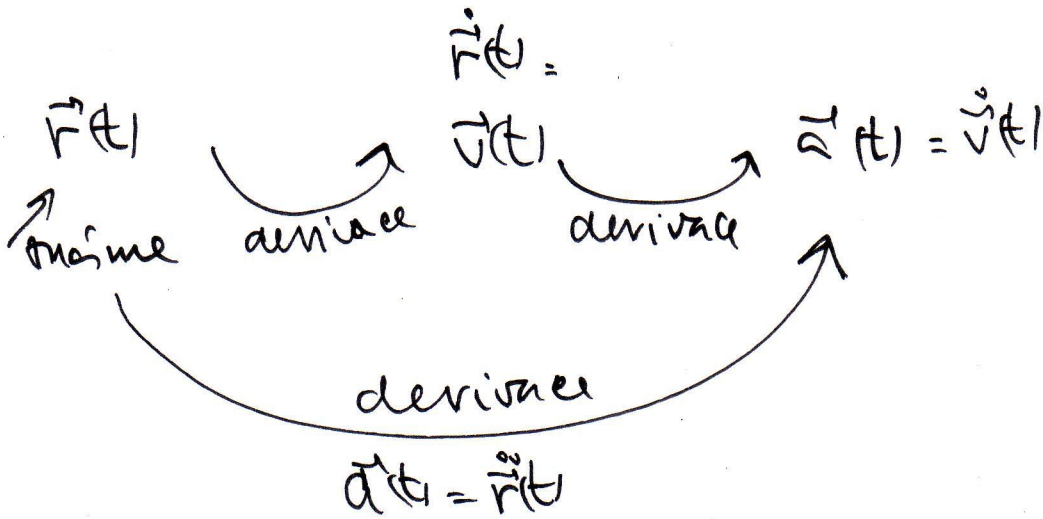 $\dot{\vec{r}}(t) =$
$\vec{r}(t)$ $\vec{v}(t)$ $\vec{a}(t) = \dot{\vec{v}}(t)$
známe derivace derivace
derivace
$\vec{a}(t) = \ddot{\vec{r}}(t)$